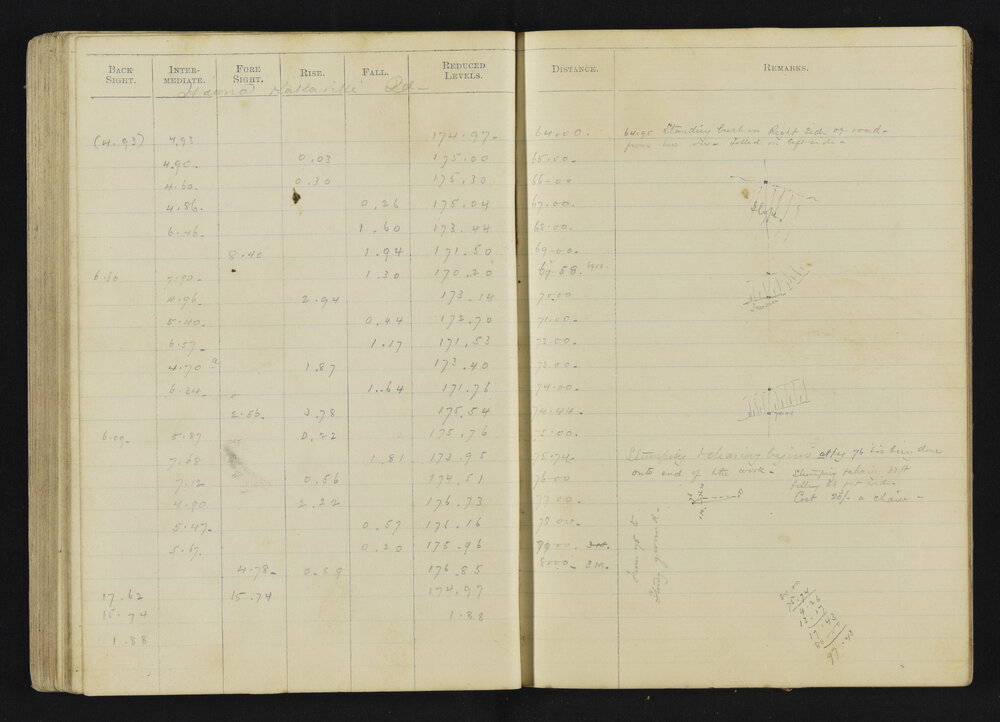 BACK SIGHT. INTER-MEDIATE. FORE SIGHT. RISE. FALL. REDUCED LEVELS. DISTANCE. REMARKS.
Rd-
(4.93) 4.93 174.97- 64.00. 64.95 Standing bush on Right side of road-
4.90- 0.03 175.00 65.00. from here on - Felled on left side-
4.60- 0.30 175.30 66-00
4.86- 0.26 175.04 67.00.
6.46- 1.60 173.44 68.00.
Slope
8.40 1.94 171.50 69-00.
6.60 7.00- 1.30 170.20 69-58.
4.96- 2.94 173.14 70.00
5.40- 0.44 172.70 71.00-
6.57- 1.17 171.53 72.00-
4.70 1.87 173.40 73.00-
6.34- 1.64 171.76 74.00-
2.56- 3.78 175.54 74.44-
6.09- 5.87 0.22 175.76 75.00-
7.68- 1.81 173.95 75.74- Stumping & clearing begins at peg 76 being done
7.12 0.56 174.51 76-00 onto end of the work- Stumping
4.90 2.22 176.73 77.00-
Cost 25/- a chain-
5.47- 0.57 176.16 78.00-
5.67- 0.20 175.96 79-00-
4.78- 0.89 176.85 80.00- 3 M.
17.62 15.74 174.97
15.74 1.88
1.88
From 75 to
ground-
80.00
75.74
4.26
13.17
17.43
80.00
97.43